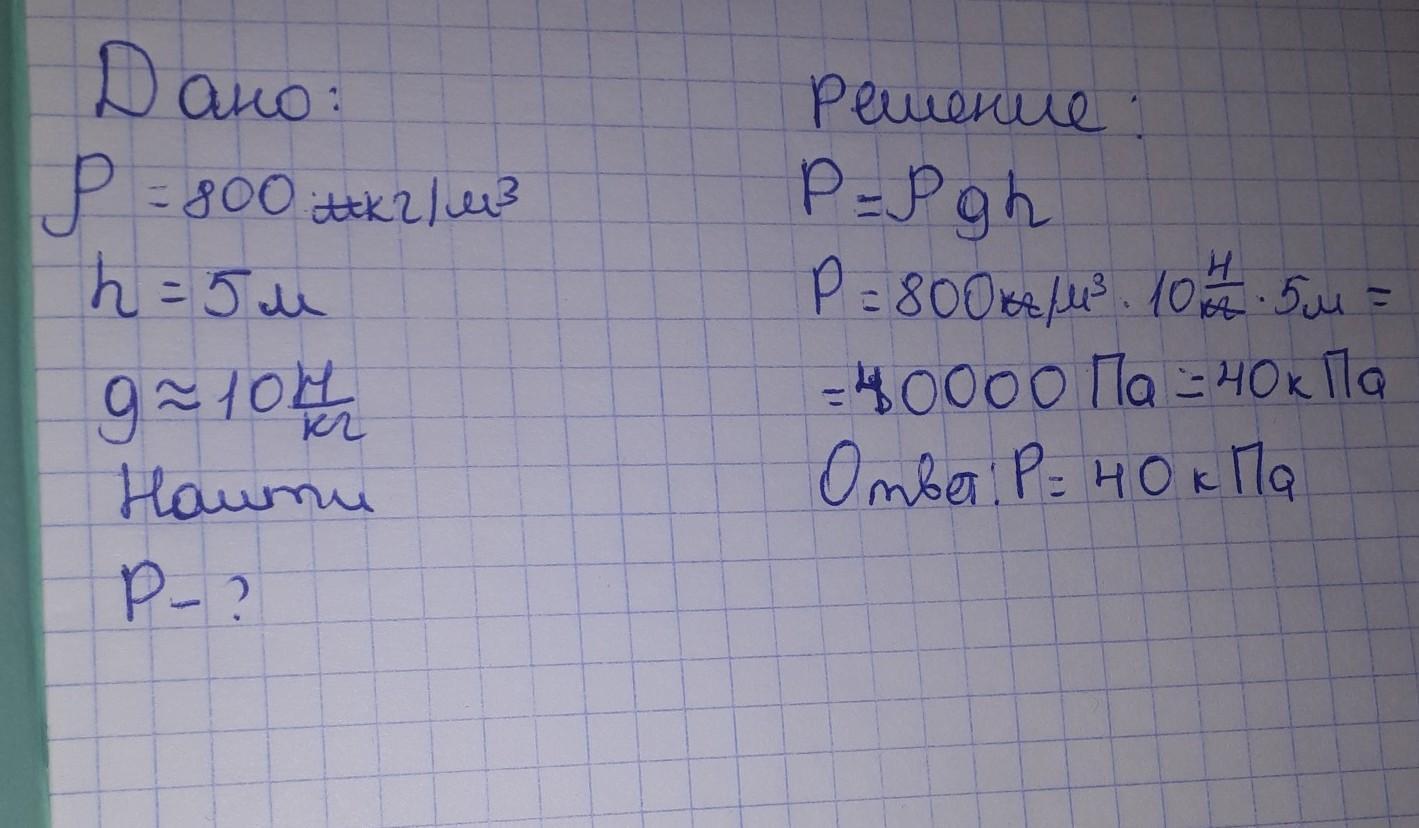 Дано:
ρ = 800 кг/м³
h = 5 м
g ≈ 10 Н/кг
Найти
P - ?
Решение:
P = ρgh
P = 800 кг/м³ · 10 Н/кг · 5м =
= 40000 Па = 40 к Па
Ответ: P = 40 к Па